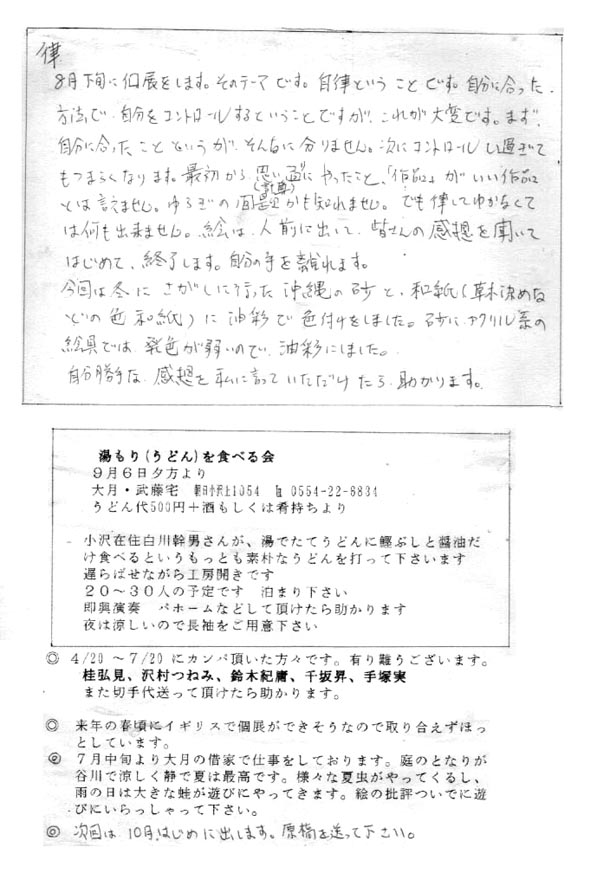 律
8月下旬に個展をします。そのテーマです。自律ということです。自分に合った
方法で、自分をコントロールするということですが、これが大変です。まず、
自分に合ったことというが、そんなに分りません。次にコントロールし過ぎても
もつまらなくなります。最初から思い通りにやったこと、「作品」がいい作品
とは言えません。ゆるぎの問題かも知れません。でも律してゆかなくて
は何も出来ません。絵は、人前に出して、皆さんの感想を聞いて
はじめて、終了します。自分の手を離れます。
今回は冬にさがしに行った沖縄の砂と、和紙(草木染めな
どの色和紙)に油彩で色付けをしました。砂に、アクリル系の
絵具では、発色が弱いので、油彩にしました。
自分勝手な感想を私に言っていただけたら助かります。
湯もり(うどん)を食べる会
9月6日夕方より
大月・武藤宅 朝日小沢上1054 ℡ 0554-22-8834
うどん代500円+酒もしくは肴持ちより
小沢在住白川幹男さんが、湯でたてうどんに鰹ぶしと醤油だ
け食べるというもっとも素朴なうどんを打って下さいます
遅らばせながら工房開きです
20~30人の予定です 泊まり下さい
即興演奏 パホームなどして頂けたら助かります
夜は涼しいので長袖をご用意下さい
◎ 4/20 ~7/20 にカンパ頂いた方々です。有り難うございます。
桂弘見、沢村つねみ、鈴木紀庸、千坂昇、手塚実
また切手代送って頂けたら助かります。
◎ 来年の春頃にイギリスで個展ができそうなので取り合えずほっ
としています。
◎ 7月中旬より大月の借家で仕事をしております。庭のとなりが
谷川で涼しく静で夏は最高です。様々な夏虫がやってくるし、
雨の日は大きな蛙が遊びにやってきます。絵の批評ついでに遊
びにいらっしゃって下さい。
◎ 次回は10月はじめに出します。原稿を送って下さい。